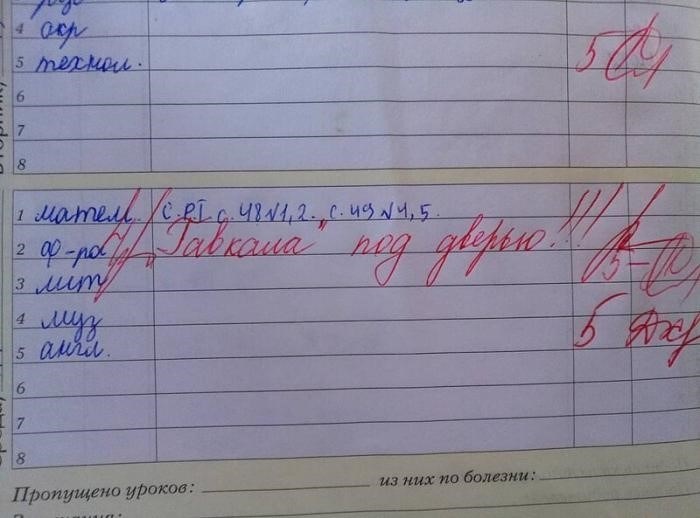 4 окр
5 технол. 5
6
7
8
1 матем. С. РТ с. 48 №1, 2. с. 49 №4, 5.
2 ф-ра "Гавкала" под дверью!!!
3 лит 5-
4 муз
5 англ. 5
6
7
8
Пропущено уроков: из них по болезни: